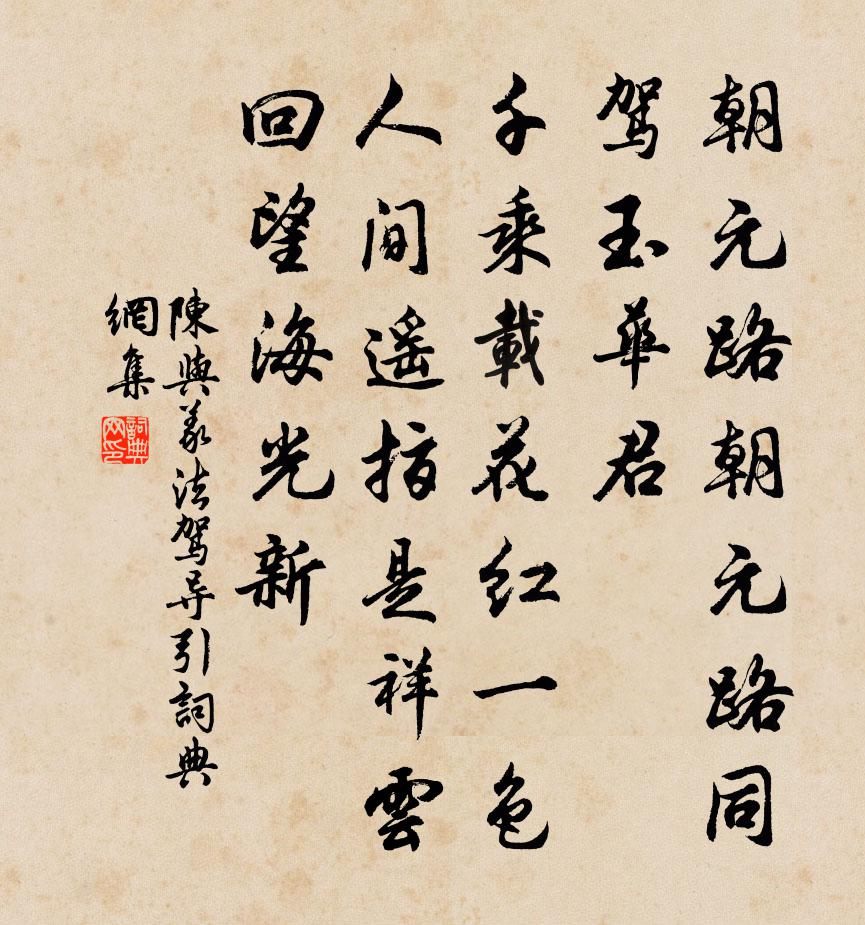 朝元路朝元路同
驾玉華君
千乘載花红一色
人間遥指是祥雲
回望海光新
陳與義法驾导引詞典
網集
詞典
网印